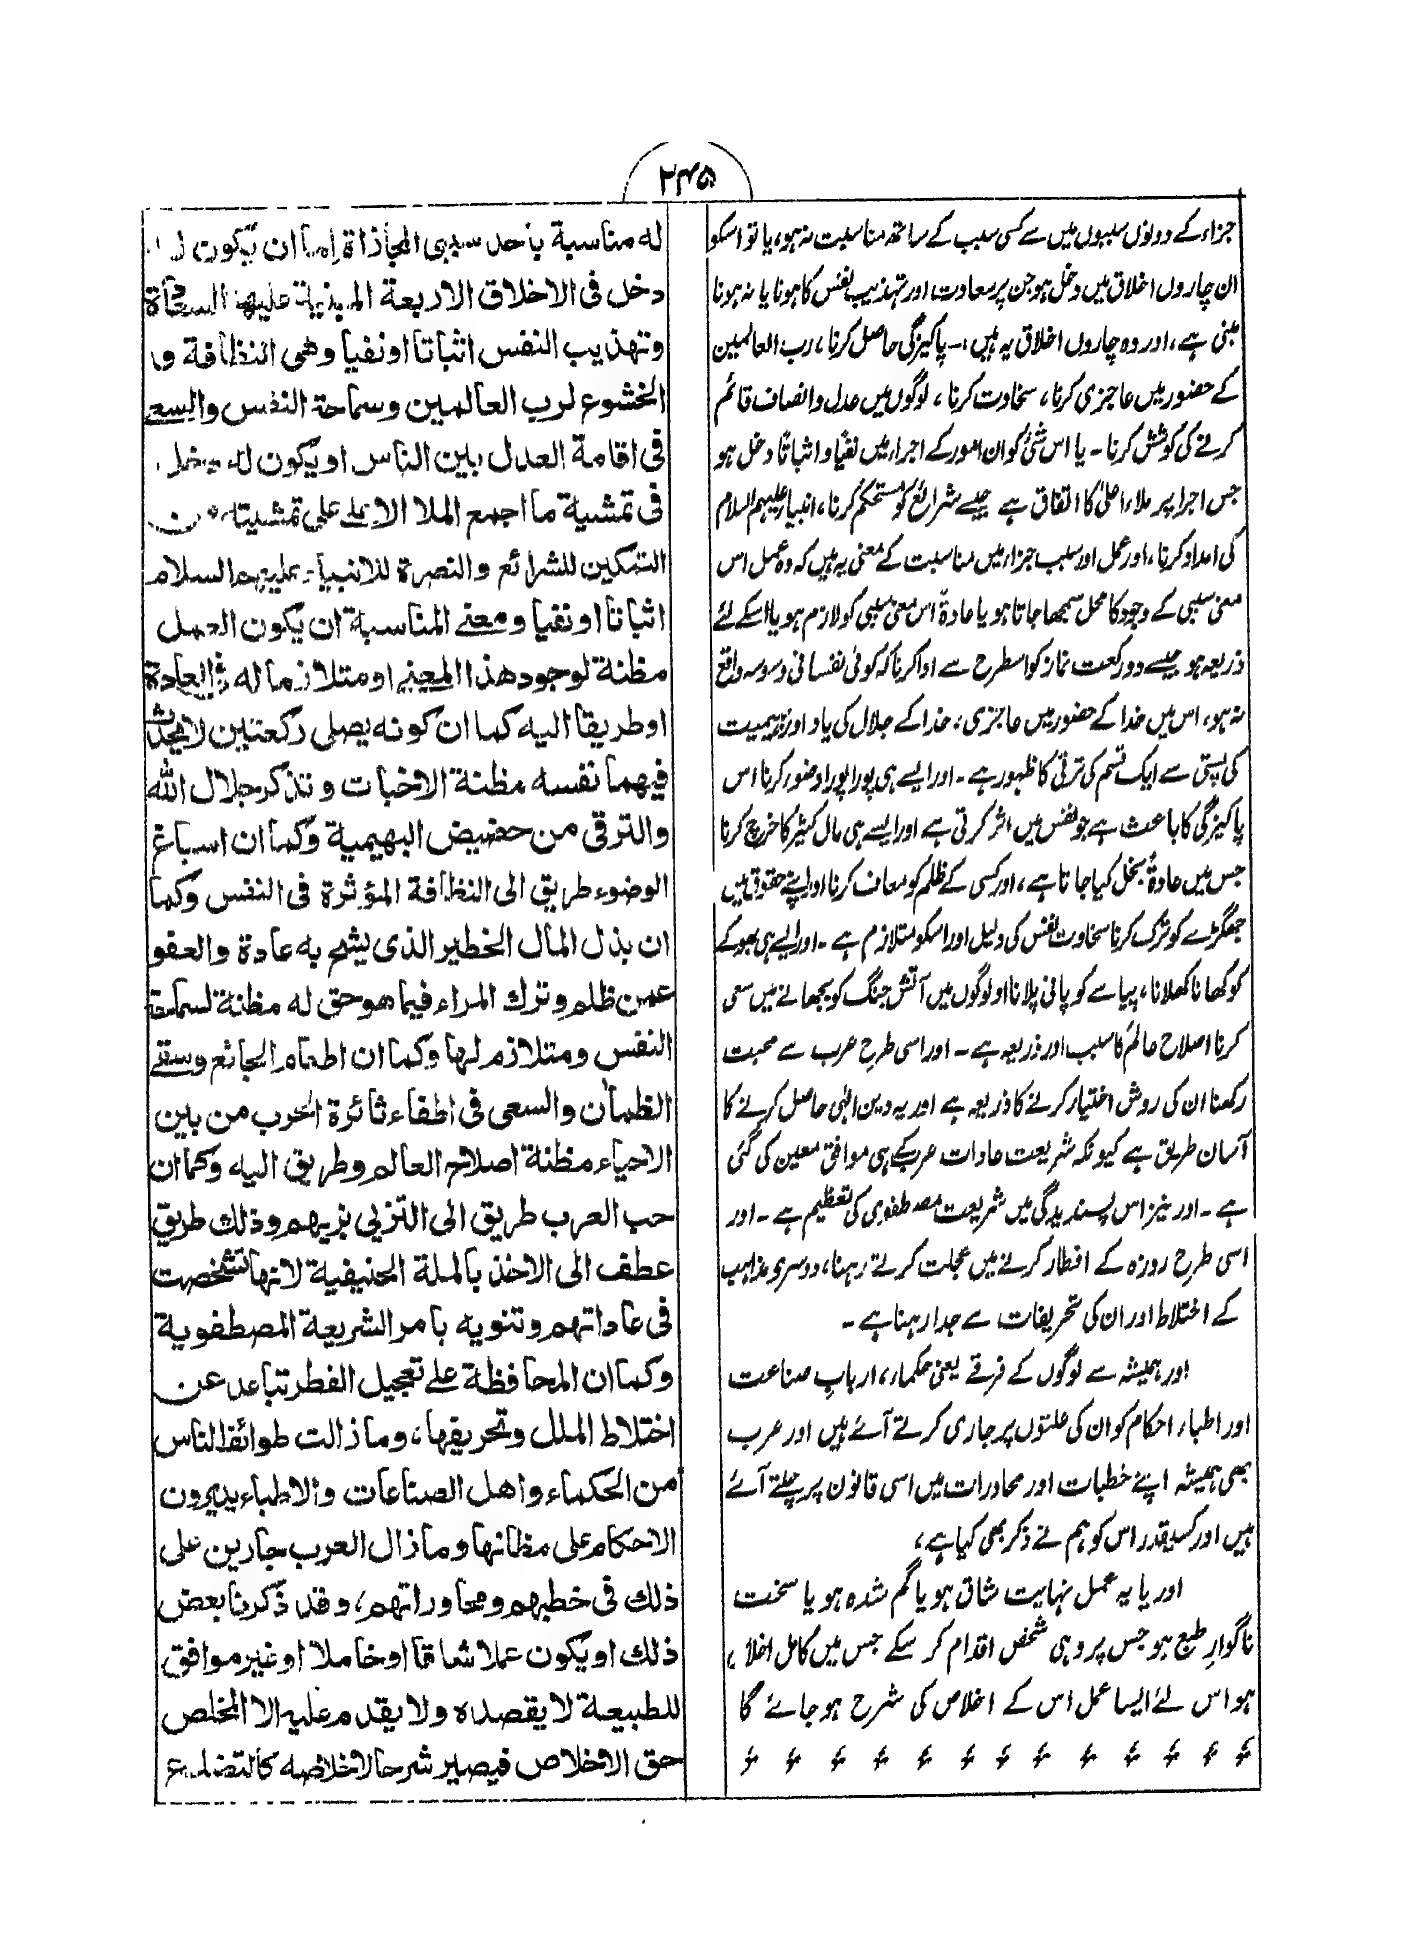 ۲۴۵
جزاء کے دونوں سببوں میں سے کسی سبب کے ساتھ مناسبت نہ ہو، یا تو اسکو
ان چاروں اخلاق میں دخل ہو جن پر سعادت اور تہذیب نفس کا ہونا یا نہ ہونا
مبنی ہے، اور وہ چاروں اخلاق یہ ہیں:۔ پاکیزگی حاصل کرنا، رب العالمین
کے حضور میں عاجزی کرنا، سخاوت کرنا، لوگوں میں عدل و انصاف قائم
کرنے کی کوشش کرنا۔ یا اس شئ کو ان امور کے اجراء میں نفیًا و اثباتًا دخل ہو
جس اجرا پر ملاء اعلیٰ کا اتفاق ہے جیسے شرائع کو مستحکم کرنا، انبیاء علیہم السلام
کی امداد کرنا، اور عمل اور سبب جزاء میں مناسبت کے معنی یہ ہیں کہ وہ عمل اس
معنی سببی کے وجود کا محل سمجھا جاتا ہو یا عادۃً اس معنی سببی کو لازم ہو یا اسکے لئے
ذریعہ ہو جیسے دو رکعت نماز کو اسطرح سے ادا کرنا کہ کوئی نفسانی وسوسہ واقع
نہ ہو، اس میں خدا کے حضور میں عاجزی، خدا کے جلال کی یاد اور بہیمیت
کی پستی سے ایک قسم کی ترقی کا ظہور ہے۔ اور ایسے ہی پورا پورا وضو کرنا اس
پاکیزگی کا باعث ہے جو نفس میں اثر کرتی ہے اور ایسے ہی مال کثیر کا خرچ کرنا
جس میں عادۃً بخل کیا جاتا ہے، اور کسی کے ظلم کو معاف کرنا اور اپنے حقوق میں
جھگڑے کو ترک کرنا سخاوت نفس کی دلیل اور اسکو متلازم ہے۔ اور ایسے ہی بھوکے
کو کھانا کھلانا، پیاسے کو پانی پلانا اور لوگوں میں آتش جنگ کو بجھانے میں سعی
کرنا اصلاح عالم کا سبب اور ذریعہ ہے۔ اور اسی طرح عرب سے محبت
رکھنا ان کی روش اختیار کرنے کا ذریعہ ہے اور یہ دین الٰہی حاصل کرنے کا
آسان طریق ہے کیونکہ شریعت عادات عرب کے ہی موافق معین کی گئی
ہے۔ اور نیز اس پسندیدگی میں شریعت مصطفوی کی تعظیم ہے۔ اور
اسی طرح روزہ کے افطار کرنے میں عجلت کرتے رہنا، دوسری مذاہب
کے اختلاط اور ان کی تحریفات سے جدا رہنا ہے۔
اور ہمیشہ سے لوگوں کے فرقے یعنی حکماء، ارباب صناعت
اور اطباء احکام کو ان کی علتوں پر جاری کرتے آئے ہیں اور عرب
بھی ہمیشہ اپنے خطبات اور محاورات میں اسی قانون پر چلتے آئے
ہیں اور کسیقدر اس کو ہم نے ذکر بھی کیا ہے،
اور یا یہ عمل نہایت شاق ہو یا گم شدہ ہو یا سخت
ناگوار طبع ہو جس پر وہی شخص اقدام کر سکے جس میں کامل
ہو اس لئے ایسا عمل اس کے اخلاص کی شرح ہو جائے گا
له مناسبة باحد سببى المجاذاة اما ان يكون
دخل فى الاخلاق الاربعة المبنية عليها السعادة
وتهذيب النفس اثباتا او نفيا وهى النظافة و
الخشوع لرب العالمين وسماحة النفس والسعى
فى اقامة العدل بين الناس او يكون له دخل
فى تمشية ما اجمع الملا الاعلى على تمشيته من
التمكين للشرائع والنصرة للانبياء عليهم السلام
اثباتا او نفيا ومعنى المناسبة ان يكون العمل
مظنة لوجود هذا المعنى او متلازما له فى العادة
او طريقا اليه كما ان كونه يصلى ركعتين لا يحدث
فيهما نفسه مظنة الاخبات وتذكر جلال الله
والترقى من حضيض البهيمية وكما ان اسباغ
الوضوء طريق الى النظافة المؤثرة فى النفس وكما
ان بذل المال الخطير الذى يشح به عادة والعفو
عمن ظلم وترك المراء فيما هو حق له مظنة لسماحة
النفس ومتلازم لها وكما ان اطعام الجائع وسقى
الظمأن والسعى فى اطفاء ثائرة الحرب من بين
الاحياء مظنة اصلاح العالم وطريق اليه وكما ان
حب العرب طريق الى التزيى بزيهم وذلك طريق
عطف الى الاخذ بالملة الحنيفية لانها تشخصت
فى عاداتهم وتنويه بامر الشريعة المصطفوية
وكما ان المحافظة على تعجيل الفطر تباعد عن
اختلاط الملل وتحريفها، وما زالت طوائف الناس
من الحكماء واهل الصناعات والاطباء يديرون
الاحكام على مظانها وما زال العرب جارين على
ذلك فى خطبهم ومحاوراتهم، وقد ذكرنا بعض
ذلك او يكون عملا شاقا او خاملا او غير موافق
للطبيعة لا يقصده ولا يقدم عليه الا المخلص
حق الاخلاص فيصير شرحا لاخلاصه كالتضلع